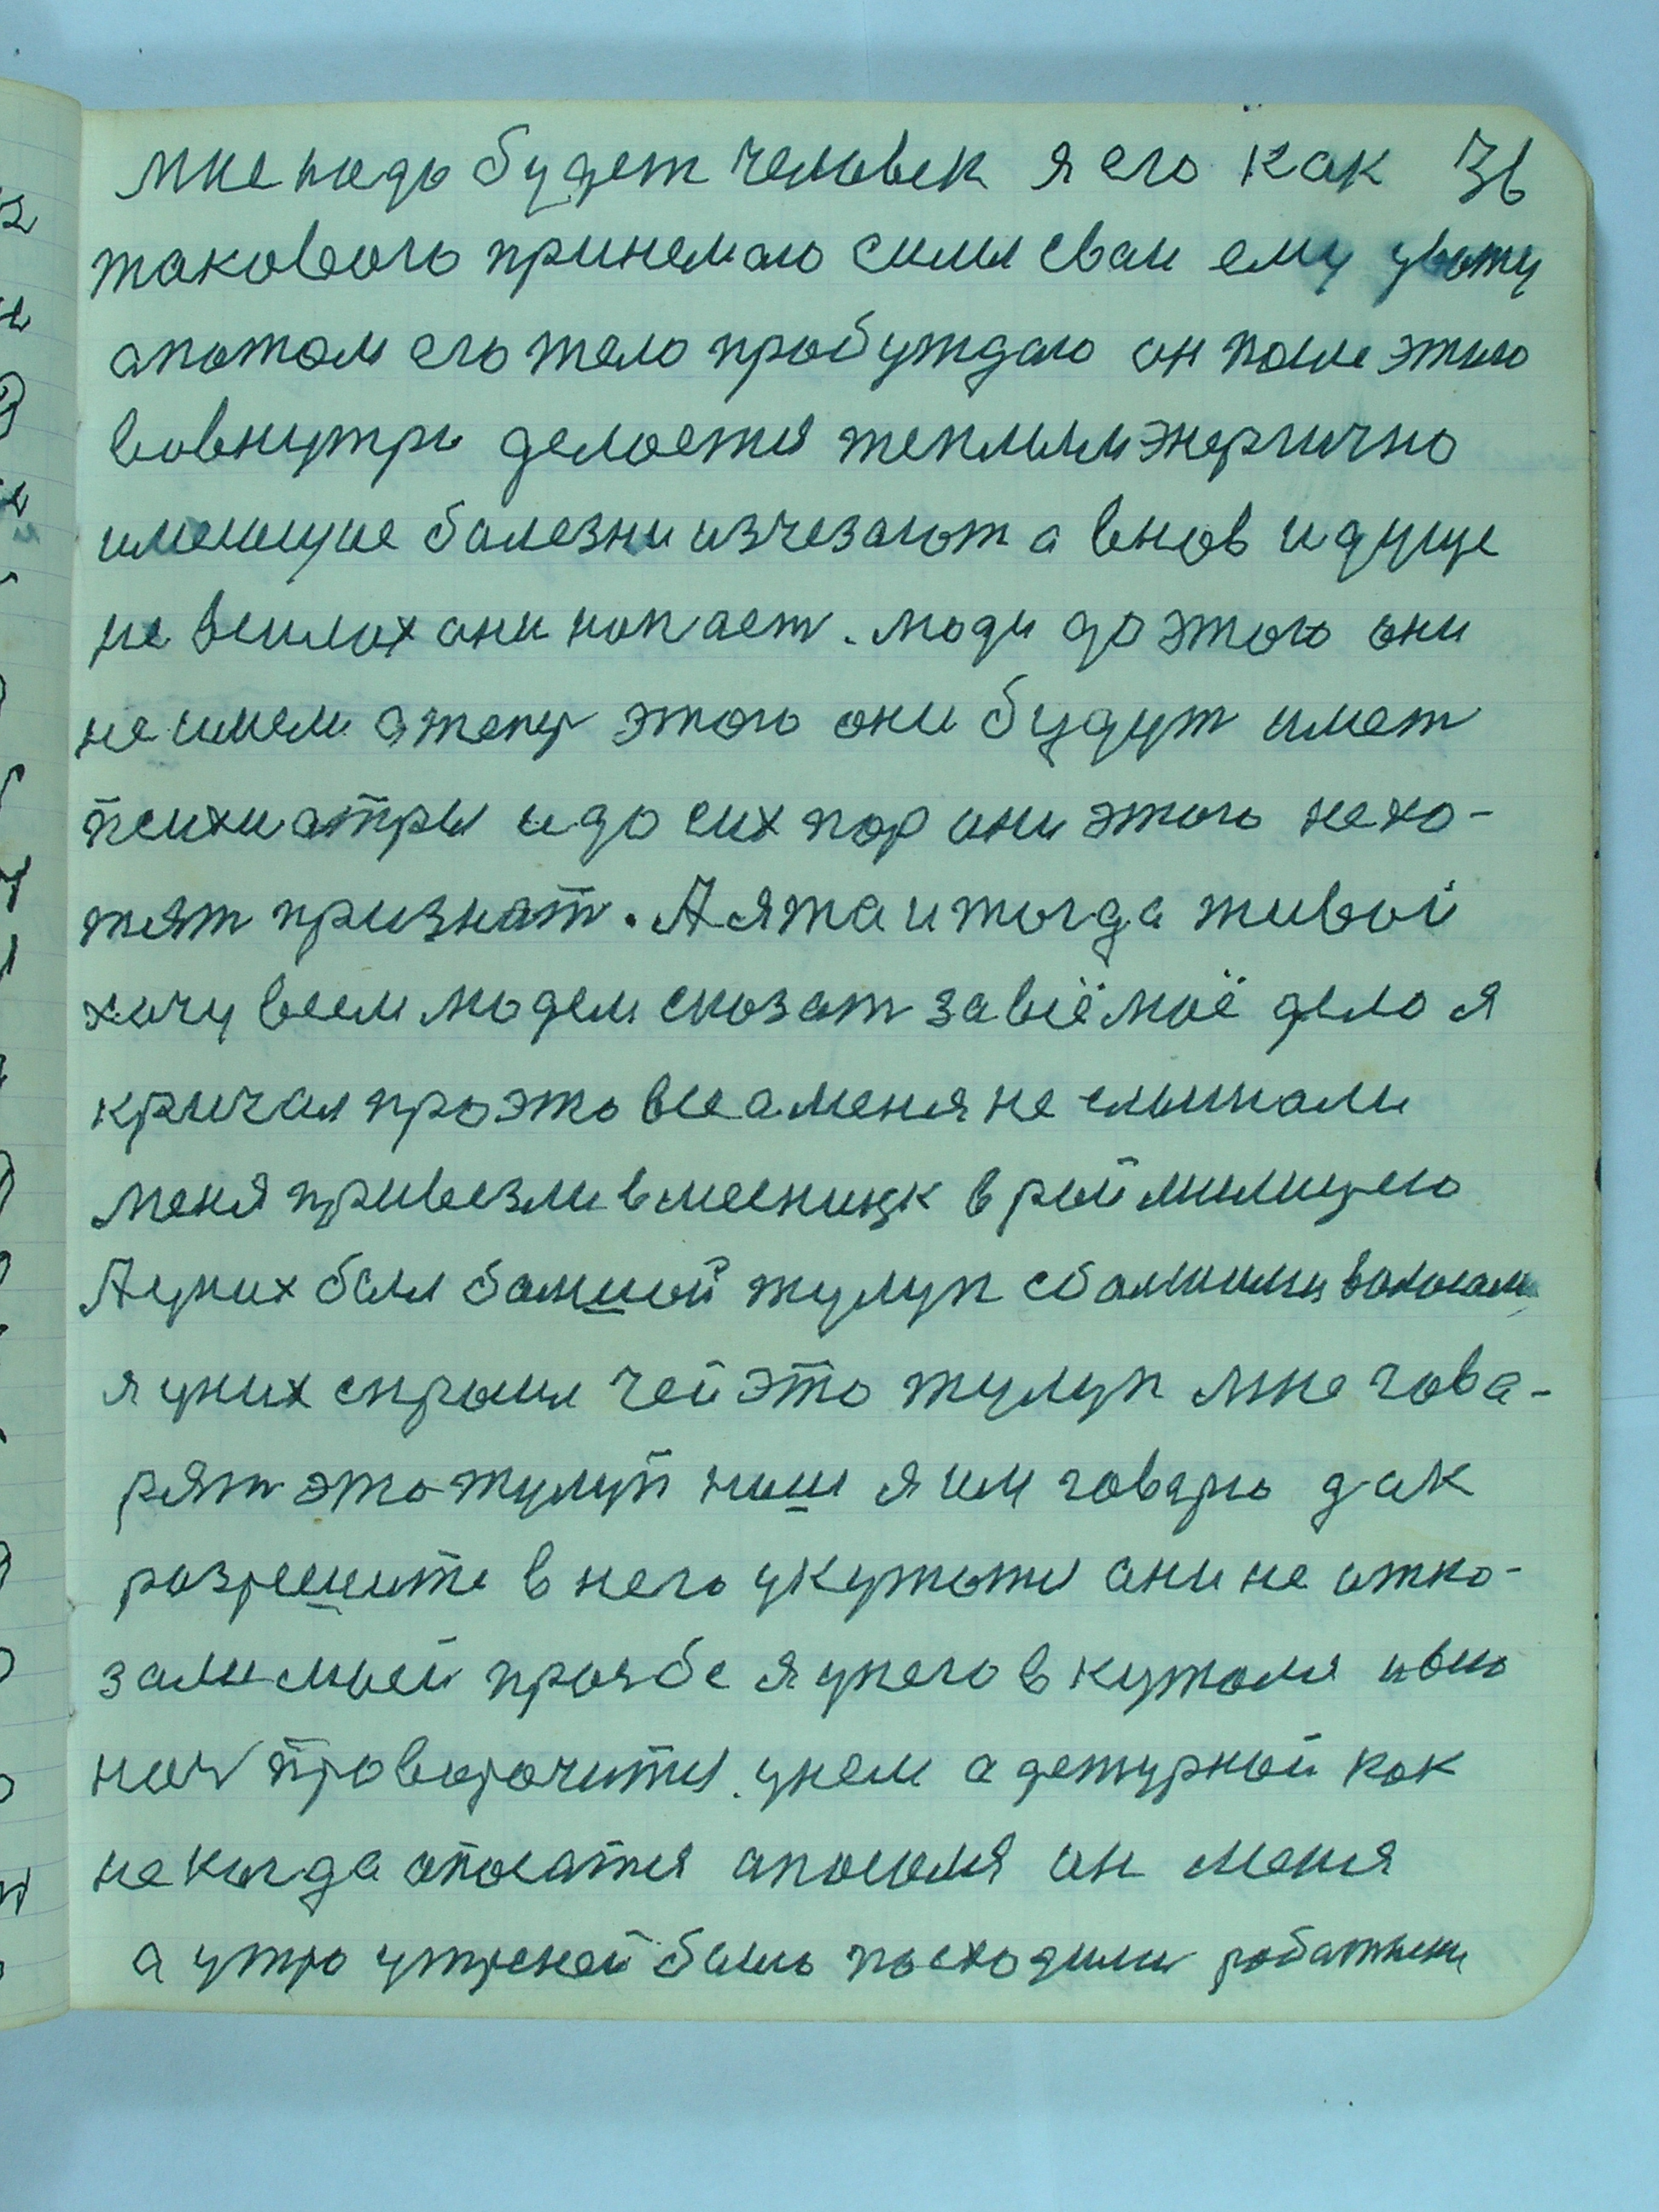 мне надо будет человек я его как 36
таковога принемаю силы сваи ему увожу
апотом его тело пробуждаю он после этого
вовнутри делается теплымэнергично
имеющие болезни изчезают а внов идуще
не всилах они напаст. люди до этого они
не имели атепер этого они будут имет
психиатры идо сих пор они этого нехо-
тят признат. А я таитогда живой
хочу всем людем сказат завсё моё дело я
кричал проэто все аменя не слышали
меня привезли в мясницк в раймилицею
А уних был большой тулуп сбольшими волосами
я уних спросил чей это тулуп мне гова-
рят это тулуп наш я им говарю дак
разрешите в него укутатся они не атка-
зали моей прозбе я унего вкутался ивсю
ноч проворочился унем а дежурной как
некогда опасатся апосался он меня
а утро утреней было посходили работники